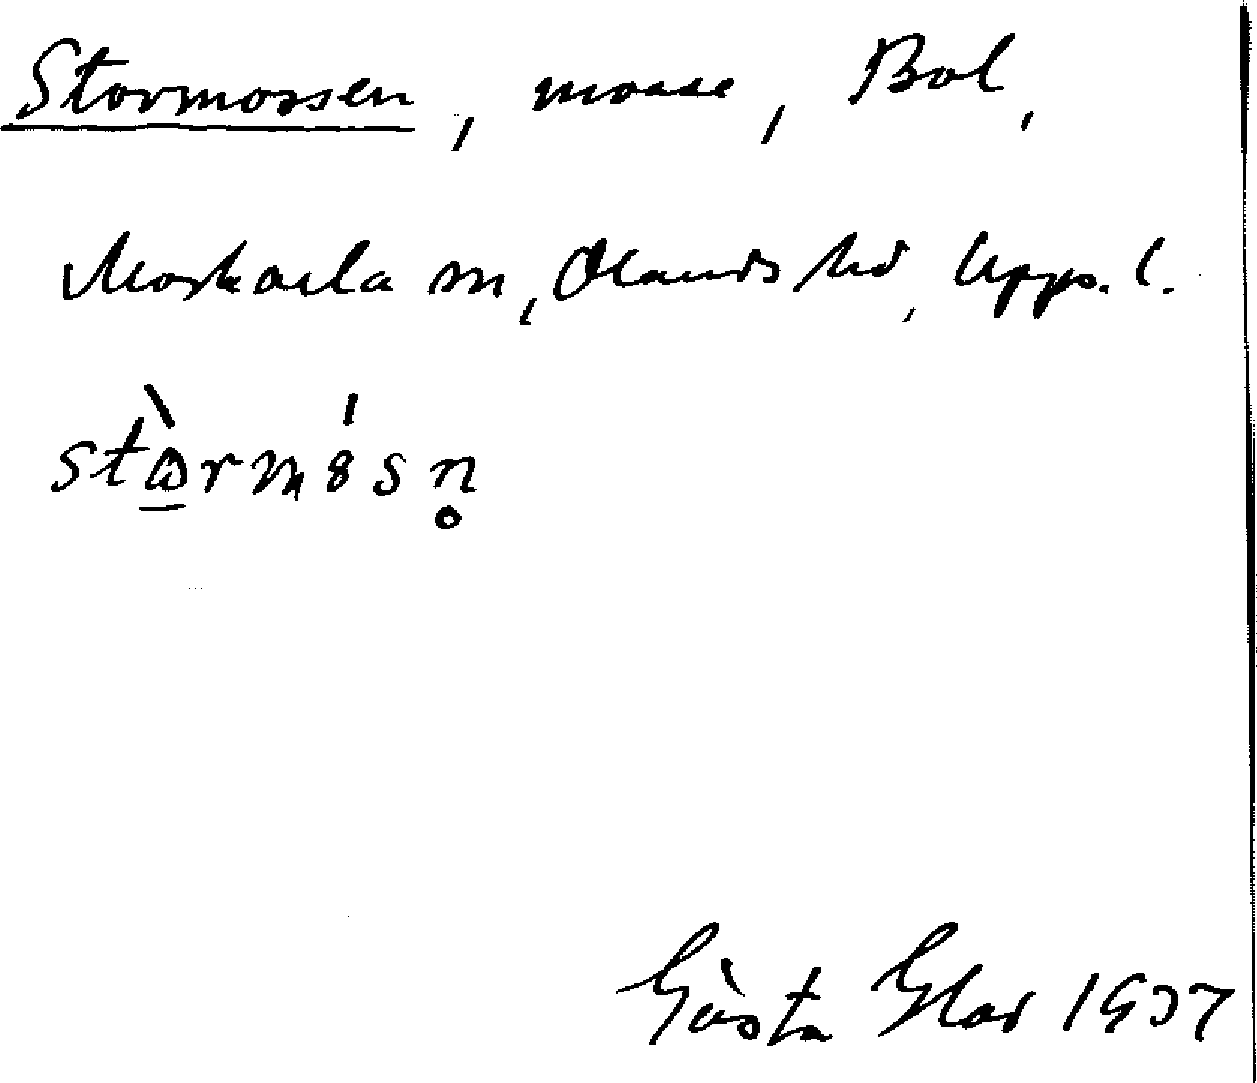 Stormossen, mosse, Bol,
Morkarla sn, Olands hd, Upps. l.
stὼ̲rmɵ́sn̥
Gösta Elas 1937